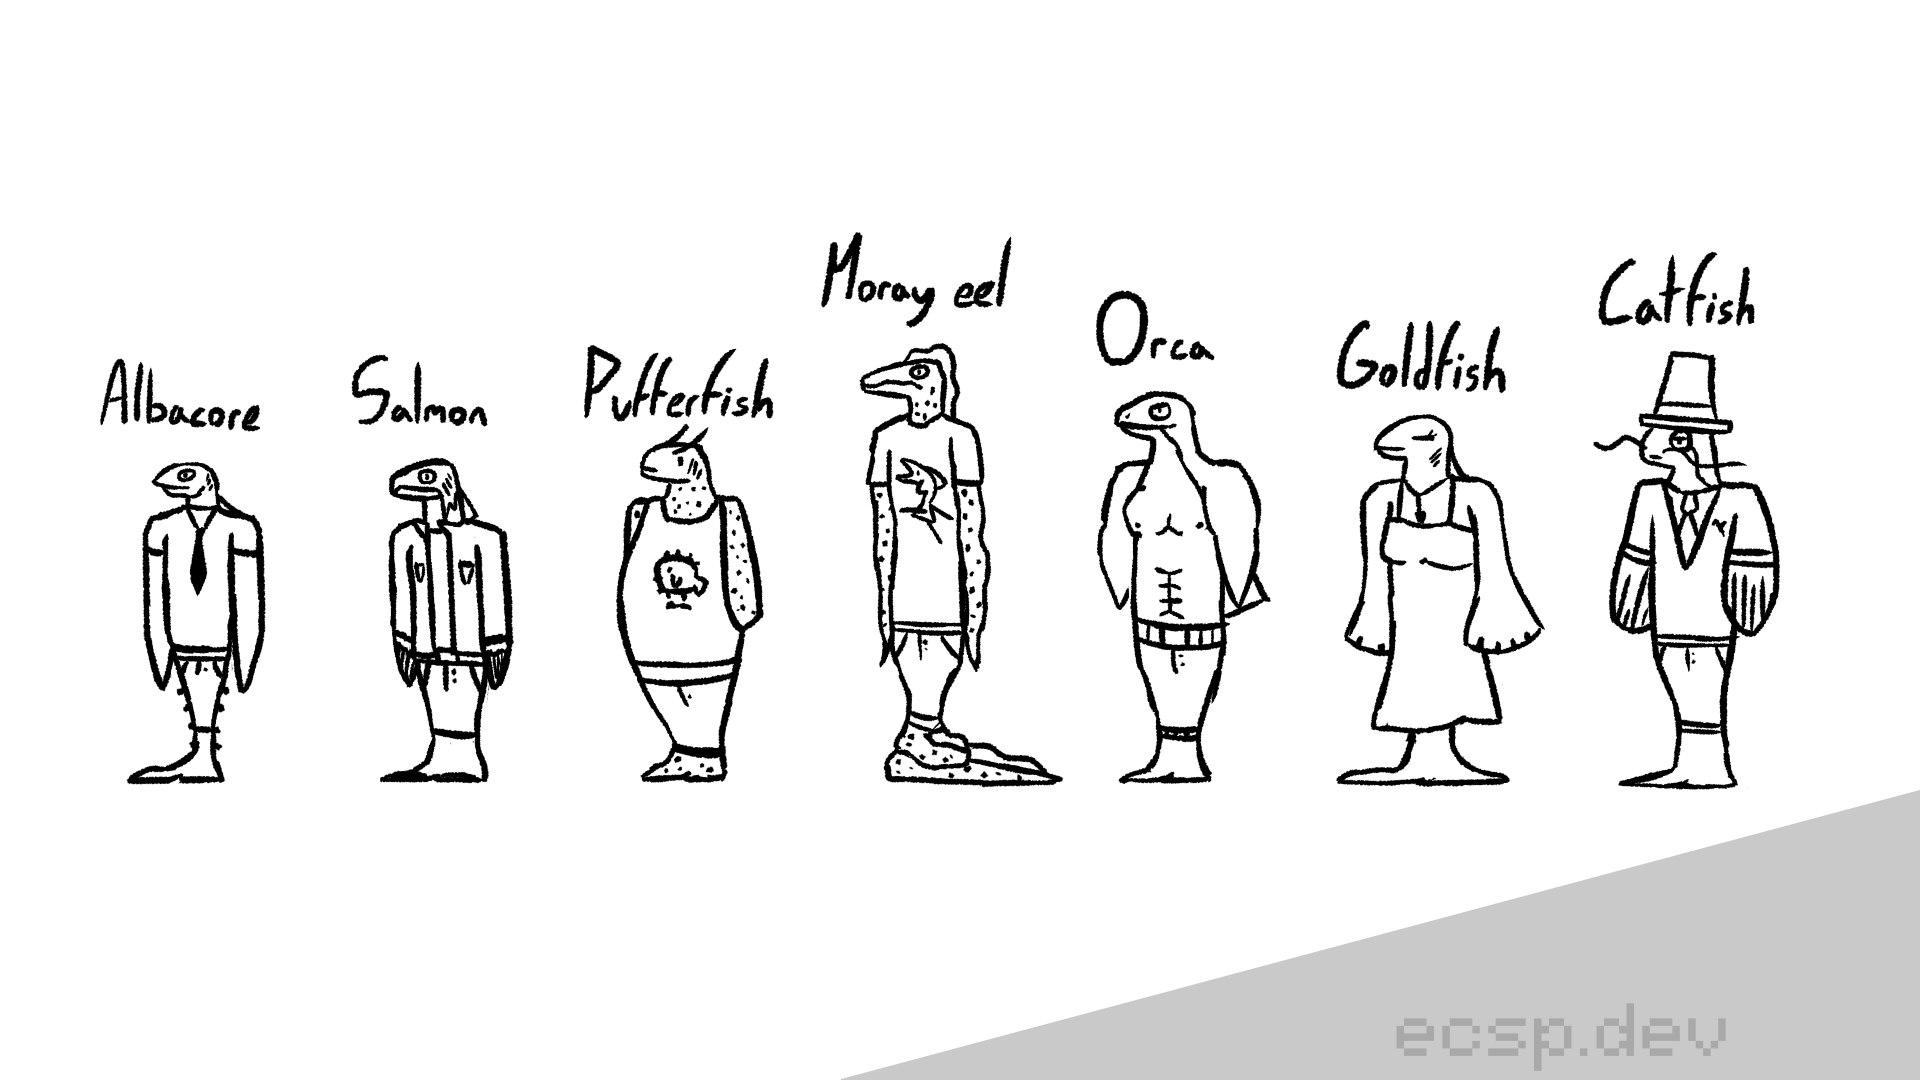 Albacore
Salmon
Pufferfish
Moray eel
Orca
Goldfish
Catfish
ecsp.dev